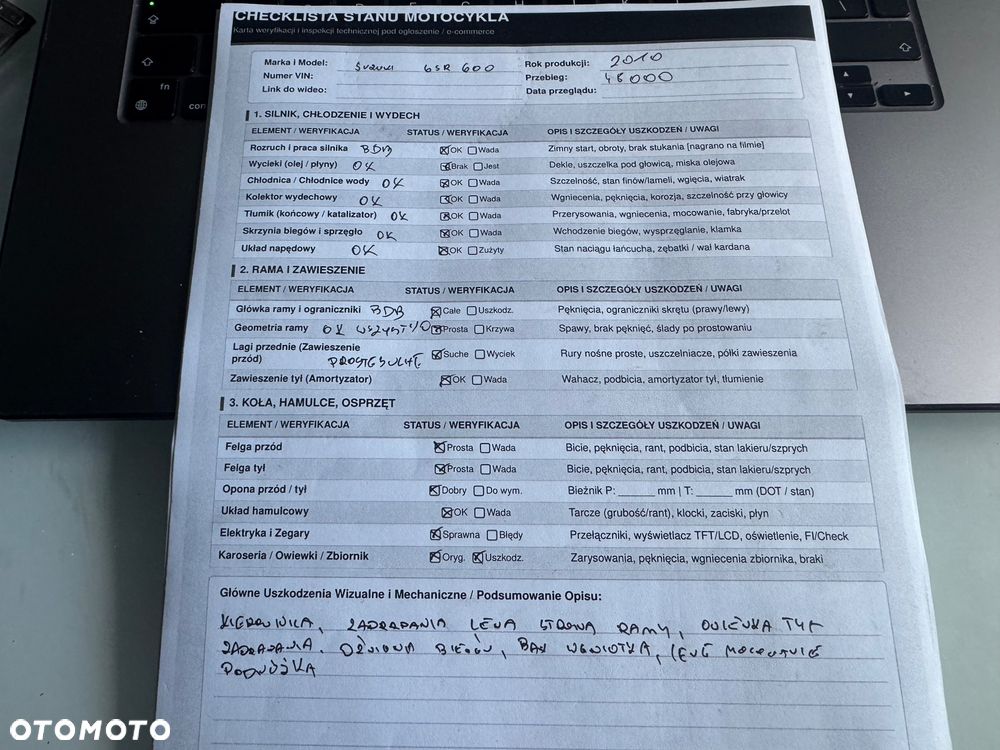 CHECKLISTA STANU MOTOCYKLA
Karta weryfikacji i inspekcji technicznej pod ogłoszenie / e-commerce
Marka i Model: SUZUKI GSR 600 Rok produkcji: 2010
Numer VIN: Przebieg: 48000
Link do wideo: Data przeglądu:
1. SILNIK, CHŁODZENIE I WYDECH
ELEMENT / WERYFIKACJA STATUS / WERYFIKACJA OPIS I SZCZEGÓŁY USZKODZEŃ / UWAGI
Rozruch i praca silnika BDB ☒OK ☐Wada Zimny start, obroty, brak stukania [nagrano na filmie]
Wycieki (olej / płyny) OK ☒Brak ☐Jest Dekle, uszczelka pod głowicą, miska olejowa
Chłodnica / Chłodnice wody OK ☒OK ☐Wada Szczelność, stan finów/lameli, wgięcia, wiatrak
Kolektor wydechowy OK ☒OK ☐Wada Wgniecenia, pęknięcia, korozja, szczelność przy głowicy
Tłumik (końcowy / katalizator) OK ☒OK ☐Wada Przerysowania, wgniecenia, mocowanie, fabryka/przelot
Skrzynia biegów i sprzęgło OK ☒OK ☐Wada Wchodzenie biegów, wysprzęglanie, klamka
Układ napędowy OK ☒OK ☐Zużyty Stan naciągu łańcucha, zębatki / wał kardana
2. RAMA I ZAWIESZENIE
ELEMENT / WERYFIKACJA STATUS / WERYFIKACJA OPIS I SZCZEGÓŁY USZKODZEŃ / UWAGI
Główka ramy i ograniczniki BDB ☒Całe ☐Uszkodz. Pęknięcia, ograniczniki skrętu (prawy/lewy)
Geometria ramy OK WSZYSTKO ☒Prosta ☐Krzywa Spawy, brak pęknięć, ślady po prostowaniu
Lagi przednie (Zawieszenie przód) PROSTE SUCHE ☒Suche ☐Wyciek Rury nośne proste, uszczelniacze, półki zawieszenia
Zawieszenie tył (Amortyzator) ☒OK ☐Wada Wahacz, podbicia, amortyzator tył, tłumienie
3. KOŁA, HAMULCE, OSPRZĘT
ELEMENT / WERYFIKACJA STATUS / WERYFIKACJA OPIS I SZCZEGÓŁY USZKODZEŃ / UWAGI
Felga przód ☒Prosta ☐Wada Bicie, pęknięcia, rant, podbicia, stan lakieru/szprych
Felga tył ☒Prosta ☐Wada Bicie, pęknięcia, rant, podbicia, stan lakieru/szprych
Opona przód / tył ☒Dobry ☐Do wym. Bieżnik P: ______ mm | T: ______ mm (DOT / stan)
Układ hamulcowy ☒OK ☐Wada Tarcze (grubość/rant), klocki, zaciski, płyn
Elektryka i Zegary ☒Sprawna ☐Błędy Przełączniki, wyświetlacz TFT/LCD, oświetlenie, FI/Check
Karoseria / Owiewki / Zbiornik ☒Oryg. ☒Uszkodz. Zarysowania, pęknięcia, wgniecenia zbiornika, braki
Główne Uszkodzenia Wizualne i Mechaniczne / Podsumowanie Opisu:
KIEROWNICA, ZADRAPANIA LEWA STRONA RAMY, OWIEWKA TYŁ
ZADRAPANIA. DŹWIGNIA BIEGÓW, BAK WGNIOTKA, LEWE MOCOWANIE
PODNÓŻKA
OTOMOTO
fn